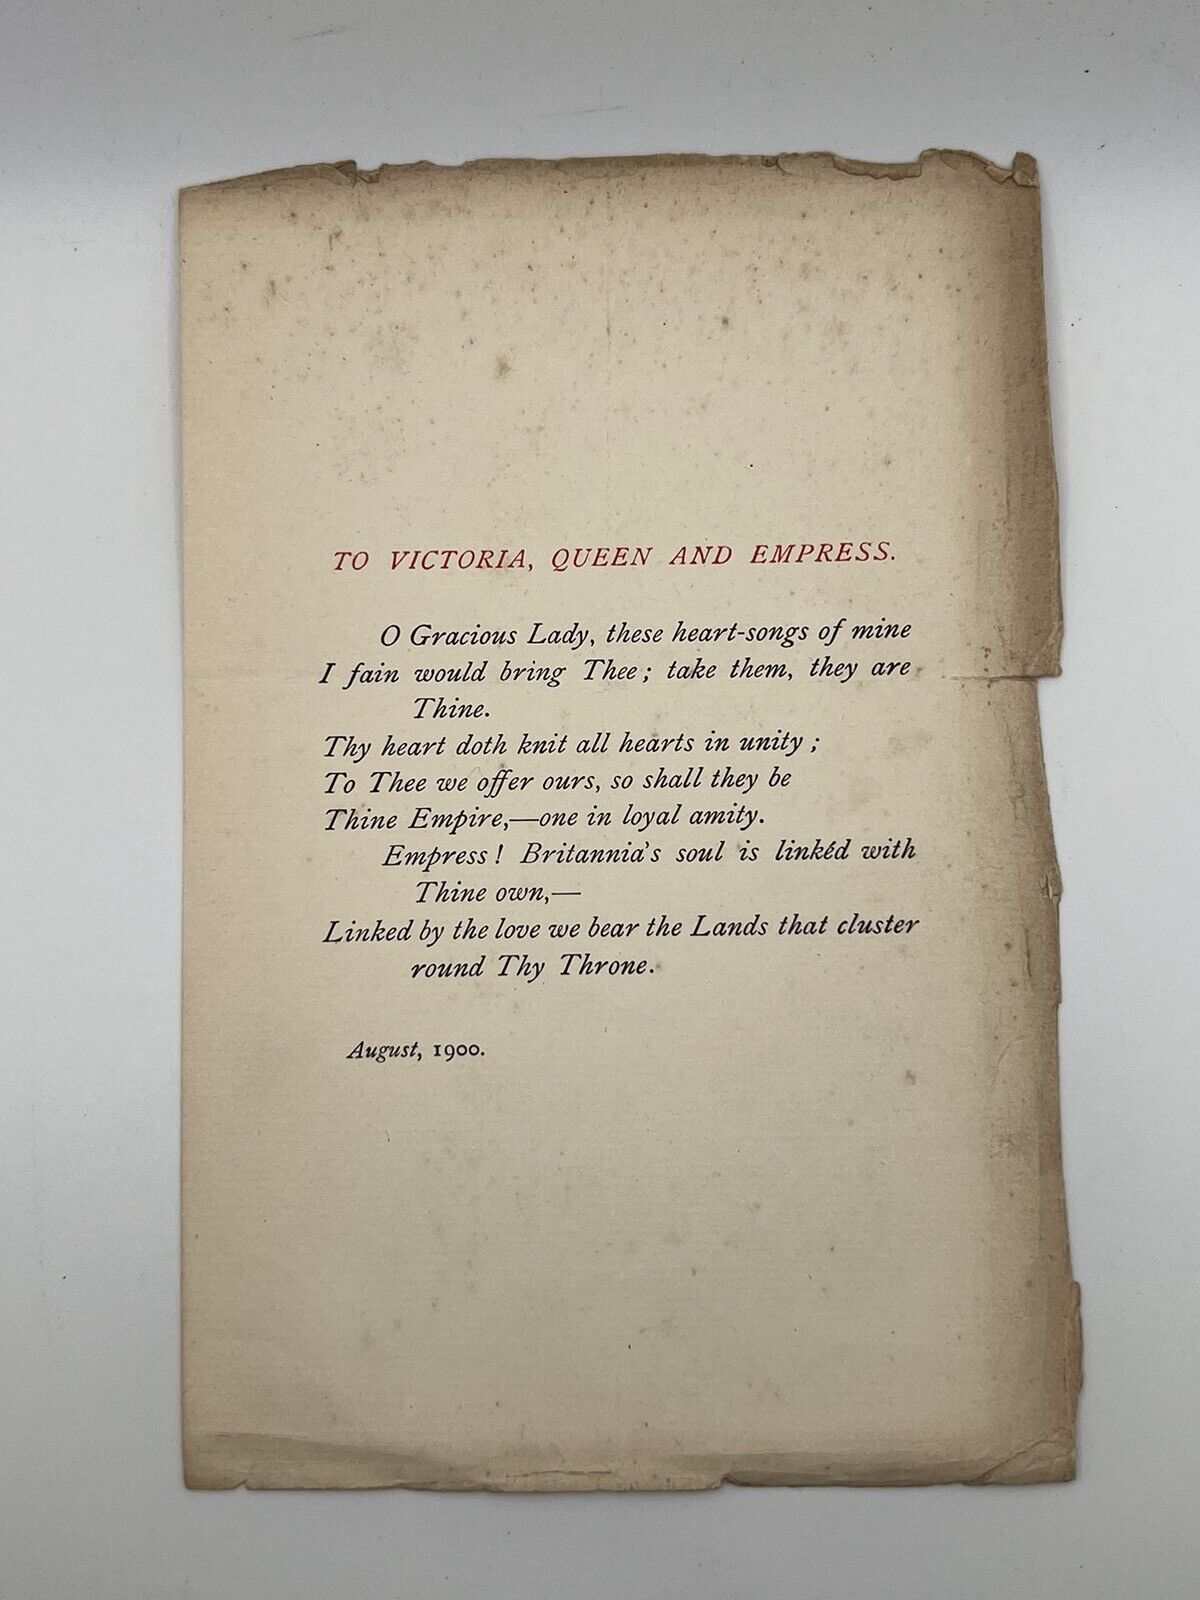 TO VICTORIA, QUEEN AND EMPRESS.
O Gracious Lady, these heart-songs of mine
I fain would bring Thee; take them, they are
Thine.
Thy heart doth knit all hearts in unity;
To Thee we offer ours, so shall they be
Thine Empire,—one in loyal amity.
Empress! Britannia's soul is linkéd with
Thine own,—
Linked by the love we bear the Lands that cluster
round Thy Throne.
August, 1900.